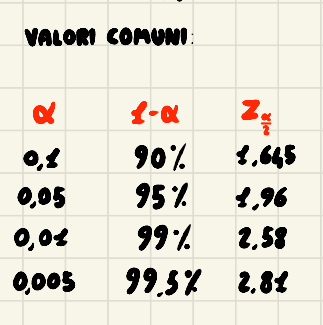 VALORI COMUNI:
α 1-α Z α/2
0,1 90% 1,645
0,05 95% 1,96
0,01 99% 2,58
0,005 99,5% 2,81